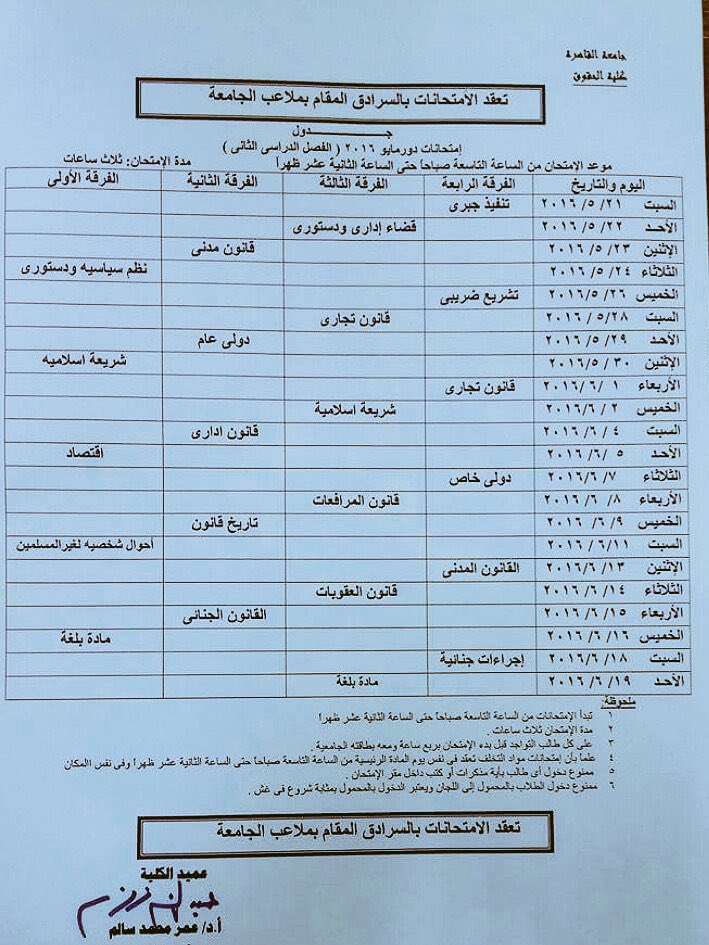 جامعة القاهرة
كلية الحقوق
تعقد الامتحانات بالسرادق المقام بملاعب الجامعة
جـــــــدول
إمتحانات دورمايو ٢٠١٦ ( الفصل الدراسى الثانى )
موعد الإمتحان من الساعة التاسعة صباحاً حتى الساعة الثانية عشر ظهراً مدة الإمتحان: ثلاث ساعات
اليوم والتاريخ الفرقة الرابعة الفرقة الثالثة الفرقة الثانية الفرقة الأولى
السبت ٢١ /٥ /٢٠١٦ تنفيذ جبرى
الأحـد ٢٢ /٥ /٢٠١٦ قضاء إدارى ودستورى
الإثنين ٢٣ /٥ /٢٠١٦ قانون مدنى
الثلاثاء ٢٤ /٥ /٢٠١٦ نظم سياسيه ودستورى
الخميس ٢٦ /٥/٢٠١٦ تشريع ضريبى
السبت ٢٨/٥ /٢٠١٦ قانون تجارى
الأحد ٢٩ /٥ /٢٠١٦ دولى عام
الإثنين ٣٠ /٥ /٢٠١٦ شريعة اسلاميه
الأربعاء ١ /٦ /٢٠١٦ قانون تجارى
الخميس ٢ /٦ /٢٠١٦ شريعة اسلامية
السبت ٤ /٦ /٢٠١٦ قانون ادارى
الأحـد ٥ /٦ /٢٠١٦ اقتصاد
الثلاثاء ٧/ ٦/ ٢٠١٦ دولى خاص
الأربعاء ٨ /٦ /٢٠١٦ قانون المرافعات
الخميس ٩ /٦ /٢٠١٦ تاريخ قانون
السبت ١١/ ٦ /٢٠١٦ أحوال شخصيه لغيرالمسلمين
الإثنين ١٣ /٦ /٢٠١٦ القانون المدنى
الثلاثاء ١٤ /٦ /٢٠١٦ قانون العقوبات
الأربعاء ١٥ /٦ /٢٠١٦ القانون الجنائى
الخميس ١٦ /٦ /٢٠١٦ مادة بلغة
السبت ١٨ /٦/٢٠١٦ إجراءات جنائية
الأحد ١٩ /٦ /٢٠١٦ مادة بلغة
ملحوظة:
١ تبدأ الإمتحانات من الساعة التاسعة صباحاً حتى الساعة الثانية عشر ظهراً
٢ مدة الإمتحان ثلاث ساعات .
٣ على كل طالب التواجد قبل بدء الإمتحان بربع ساعة ومعه بطاقته الجامعية .
٤ علماً بأن إمتحانات مواد التخلف تعقد فى نفس يوم المادة الرئيسية من الساعة التاسعة صباحاً حتى الساعة الثانية عشر ظهراً وفى نفس المكان
٥ ممنوع دخول أى طالب بأية مذكرات أو كتب داخل مقر الإمتحان .
٦ ممنوع دخول الطلاب بالمحمول إلى اللجان ويعتبر الدخول بالمحمول بمثابة شروع فى غش .
تعقد الامتحانات بالسرادق المقام بملاعب الجامعة
عميد الكلية
أ.د/ عمر محمد سالم